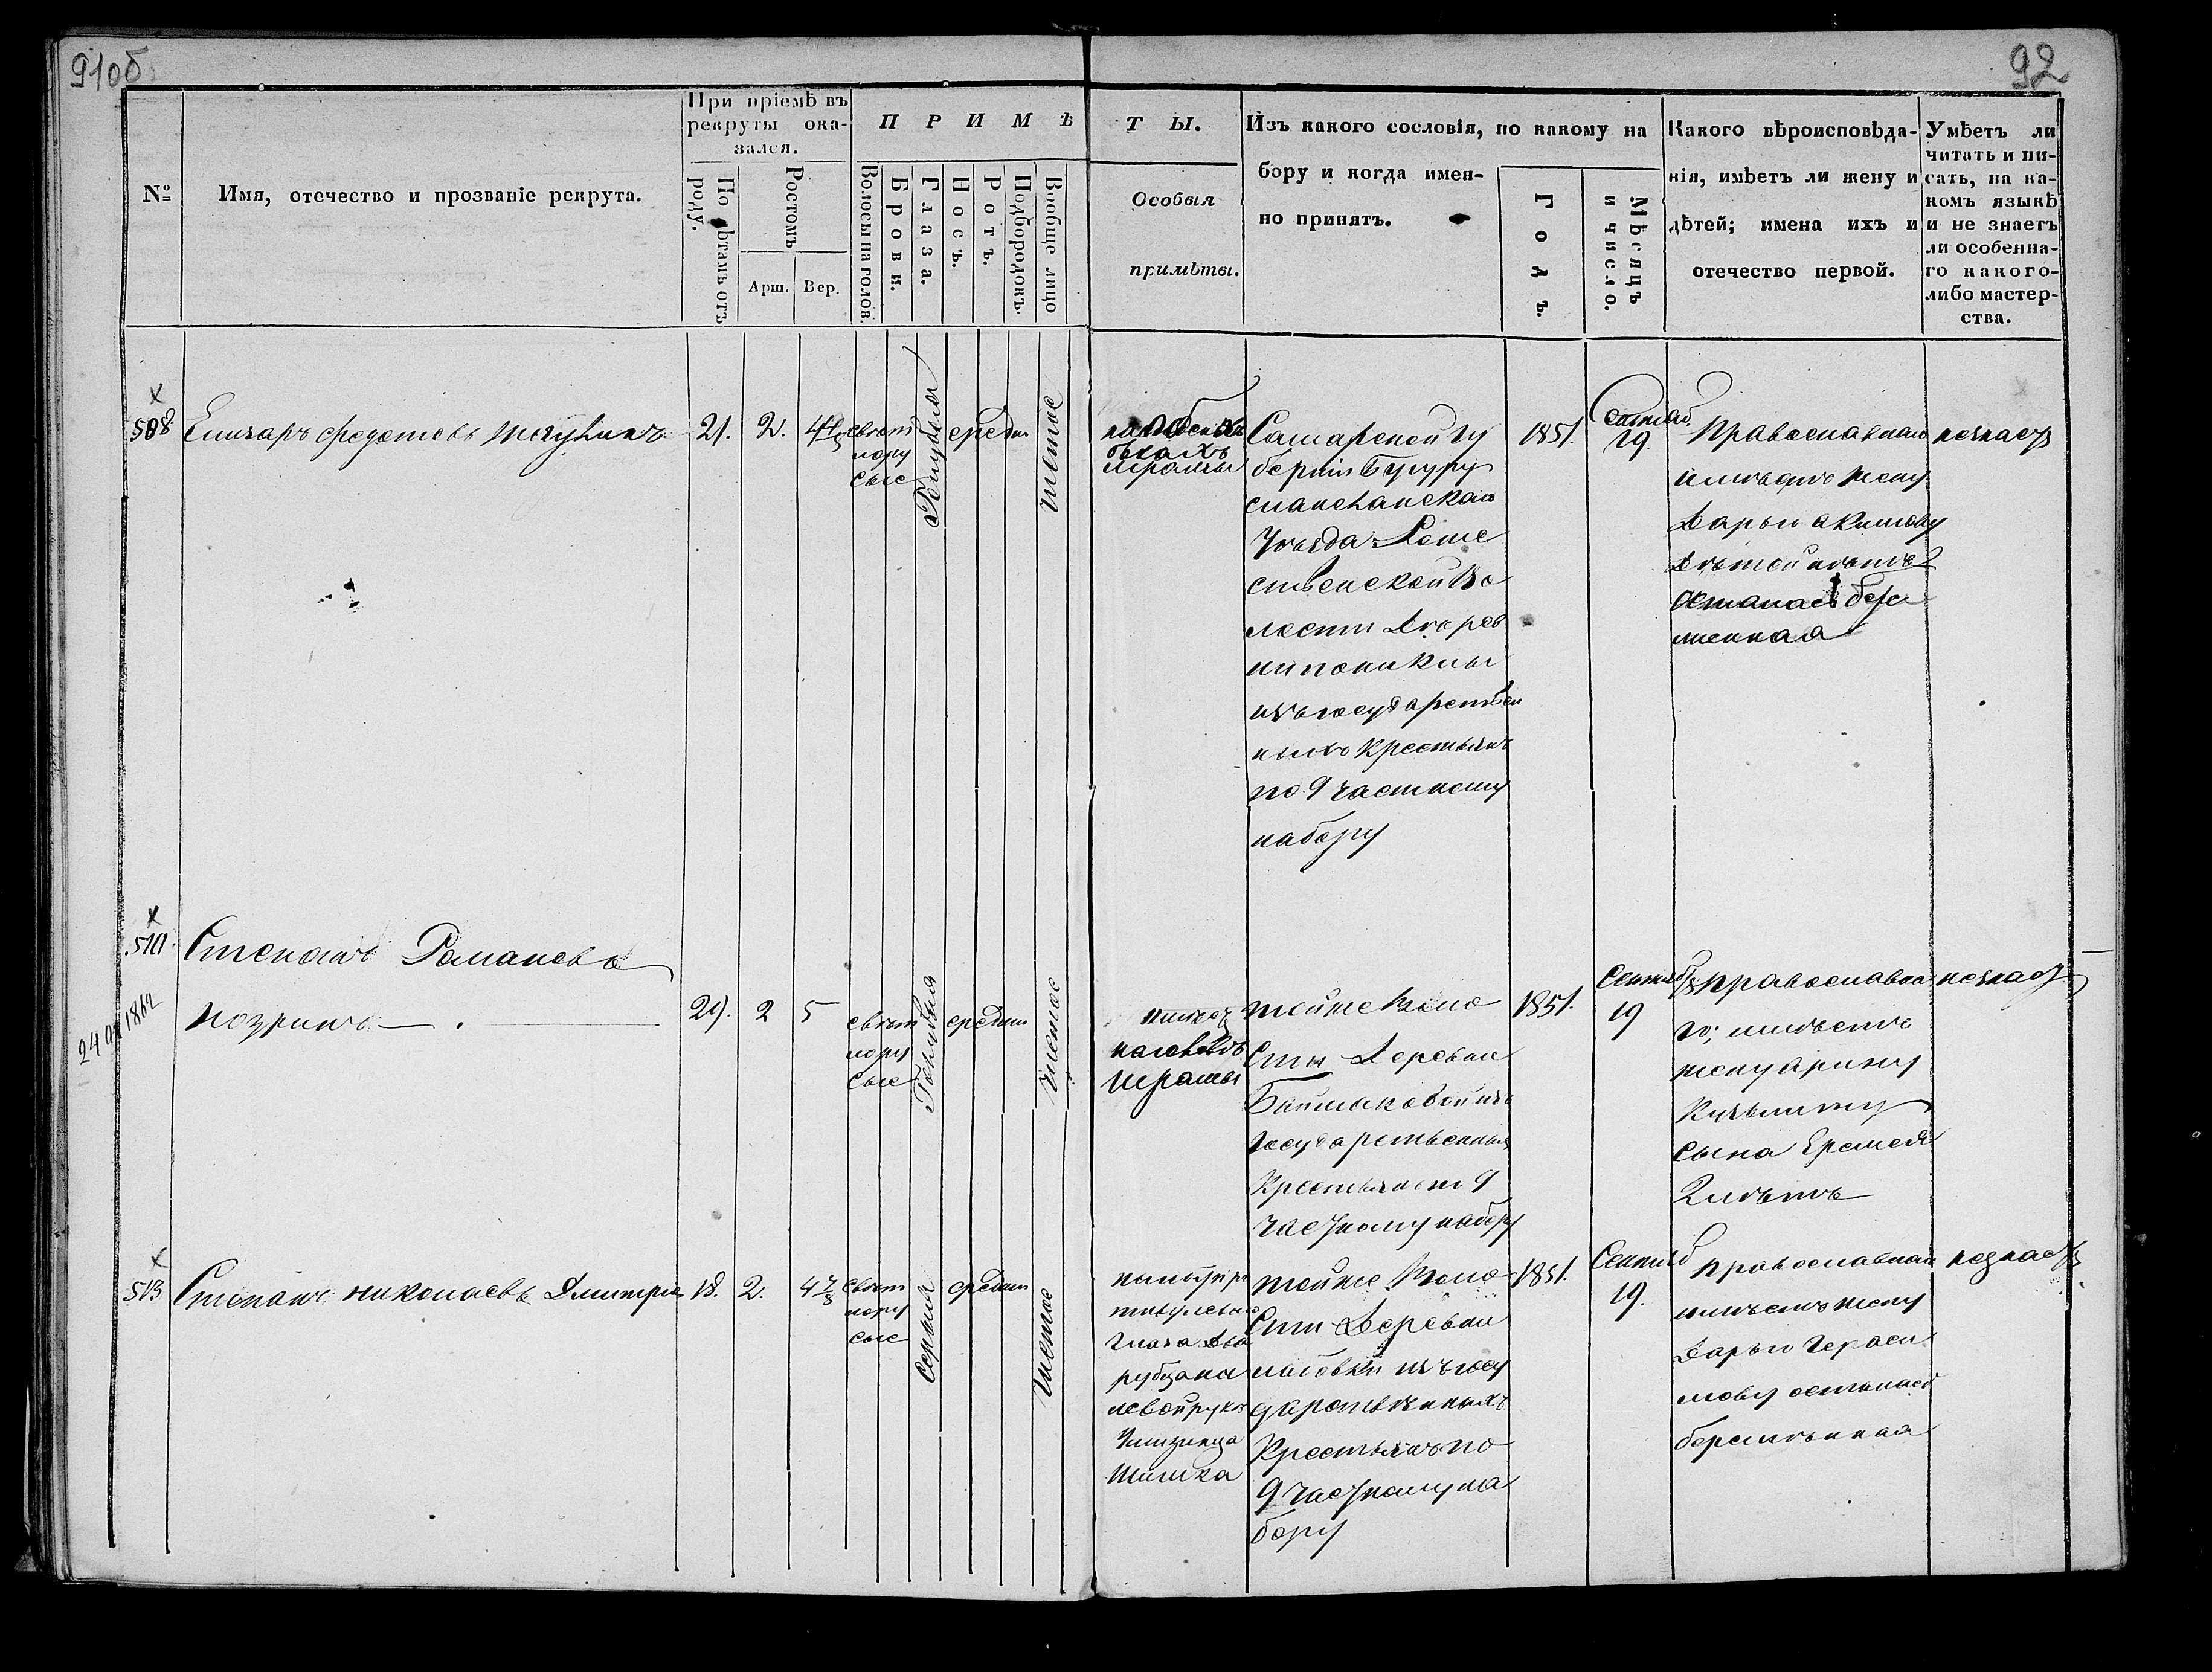 91об
92
№
Имя, отечество и прозваніе рекрута.
При пріемѣ въ
рекруты ока-
зался.
По лѣтамъ отъ
роду.
Ростомъ
Арш.
Вер.
ПРИМѢ
Волосы на голов.
Брови.
Глаза.
Носъ.
Ротъ.
Подбородокъ.
Вообще лицо
ТЫ.
Особыя
примѣты.
Изъ какого сословія, по какому на
бору и когда имен-
но принятъ.
Годъ.
Мѣсяцъ
и число.
Какого вѣроисповѣда-
нія, имѣетъ ли жену и
дѣтей; имена ихъ и
отечество первой.
Умѣетъ ли
читать и пи-
сать, на ка-
комъ языкѣ
и не знаетъ
ли особенна-
го какого-
либо мастер-
ства.
508
21.
2.
свѣтл
лору
сые
Голубыя
средн
чистое
Самарской гу
берніи Бугуру
сланскаго
Уѣзда
ственской Во
лости Дѣрев
изъ государствен
ныхъ Крестьянъ
по 9 частному
набору
1851.
Сентяб
19
Православнаго
имѣетъ жену
Дарью Акимову
Дѣтей нѣтъ
осталась бере
менная
незнаетъ
510
24 ок 1862
Степанъ Романовъ
21.
2
5
свѣтл
лору
сые
Голубыя
средн
чистое
шрамы
тойже Воло
сти Деревни
изъ
Государственныхъ
Крестьянъ по 9
частному набору
1851.
Сентяб
19
Православна
го; имѣетъ
жену Арину
Кузьмину
сына Еремея
2 лѣтъ
незнаетъ
513
Степанъ Николаевъ Дмитріе
18.
2.
4 7/8
свѣтл
лору
сые
Серыя
средн
чистое
глаза два
рубца на
левой руке
шишка
тойже Воло
сти Деревни
изъ госу
дарственныхъ
Крестьянъ по
9 частному на
бору
1851.
Сентяб
19.
Православнаго
имѣетъ жену
Дарью Гераси
мову осталась
беремѣнная
незнаетъ